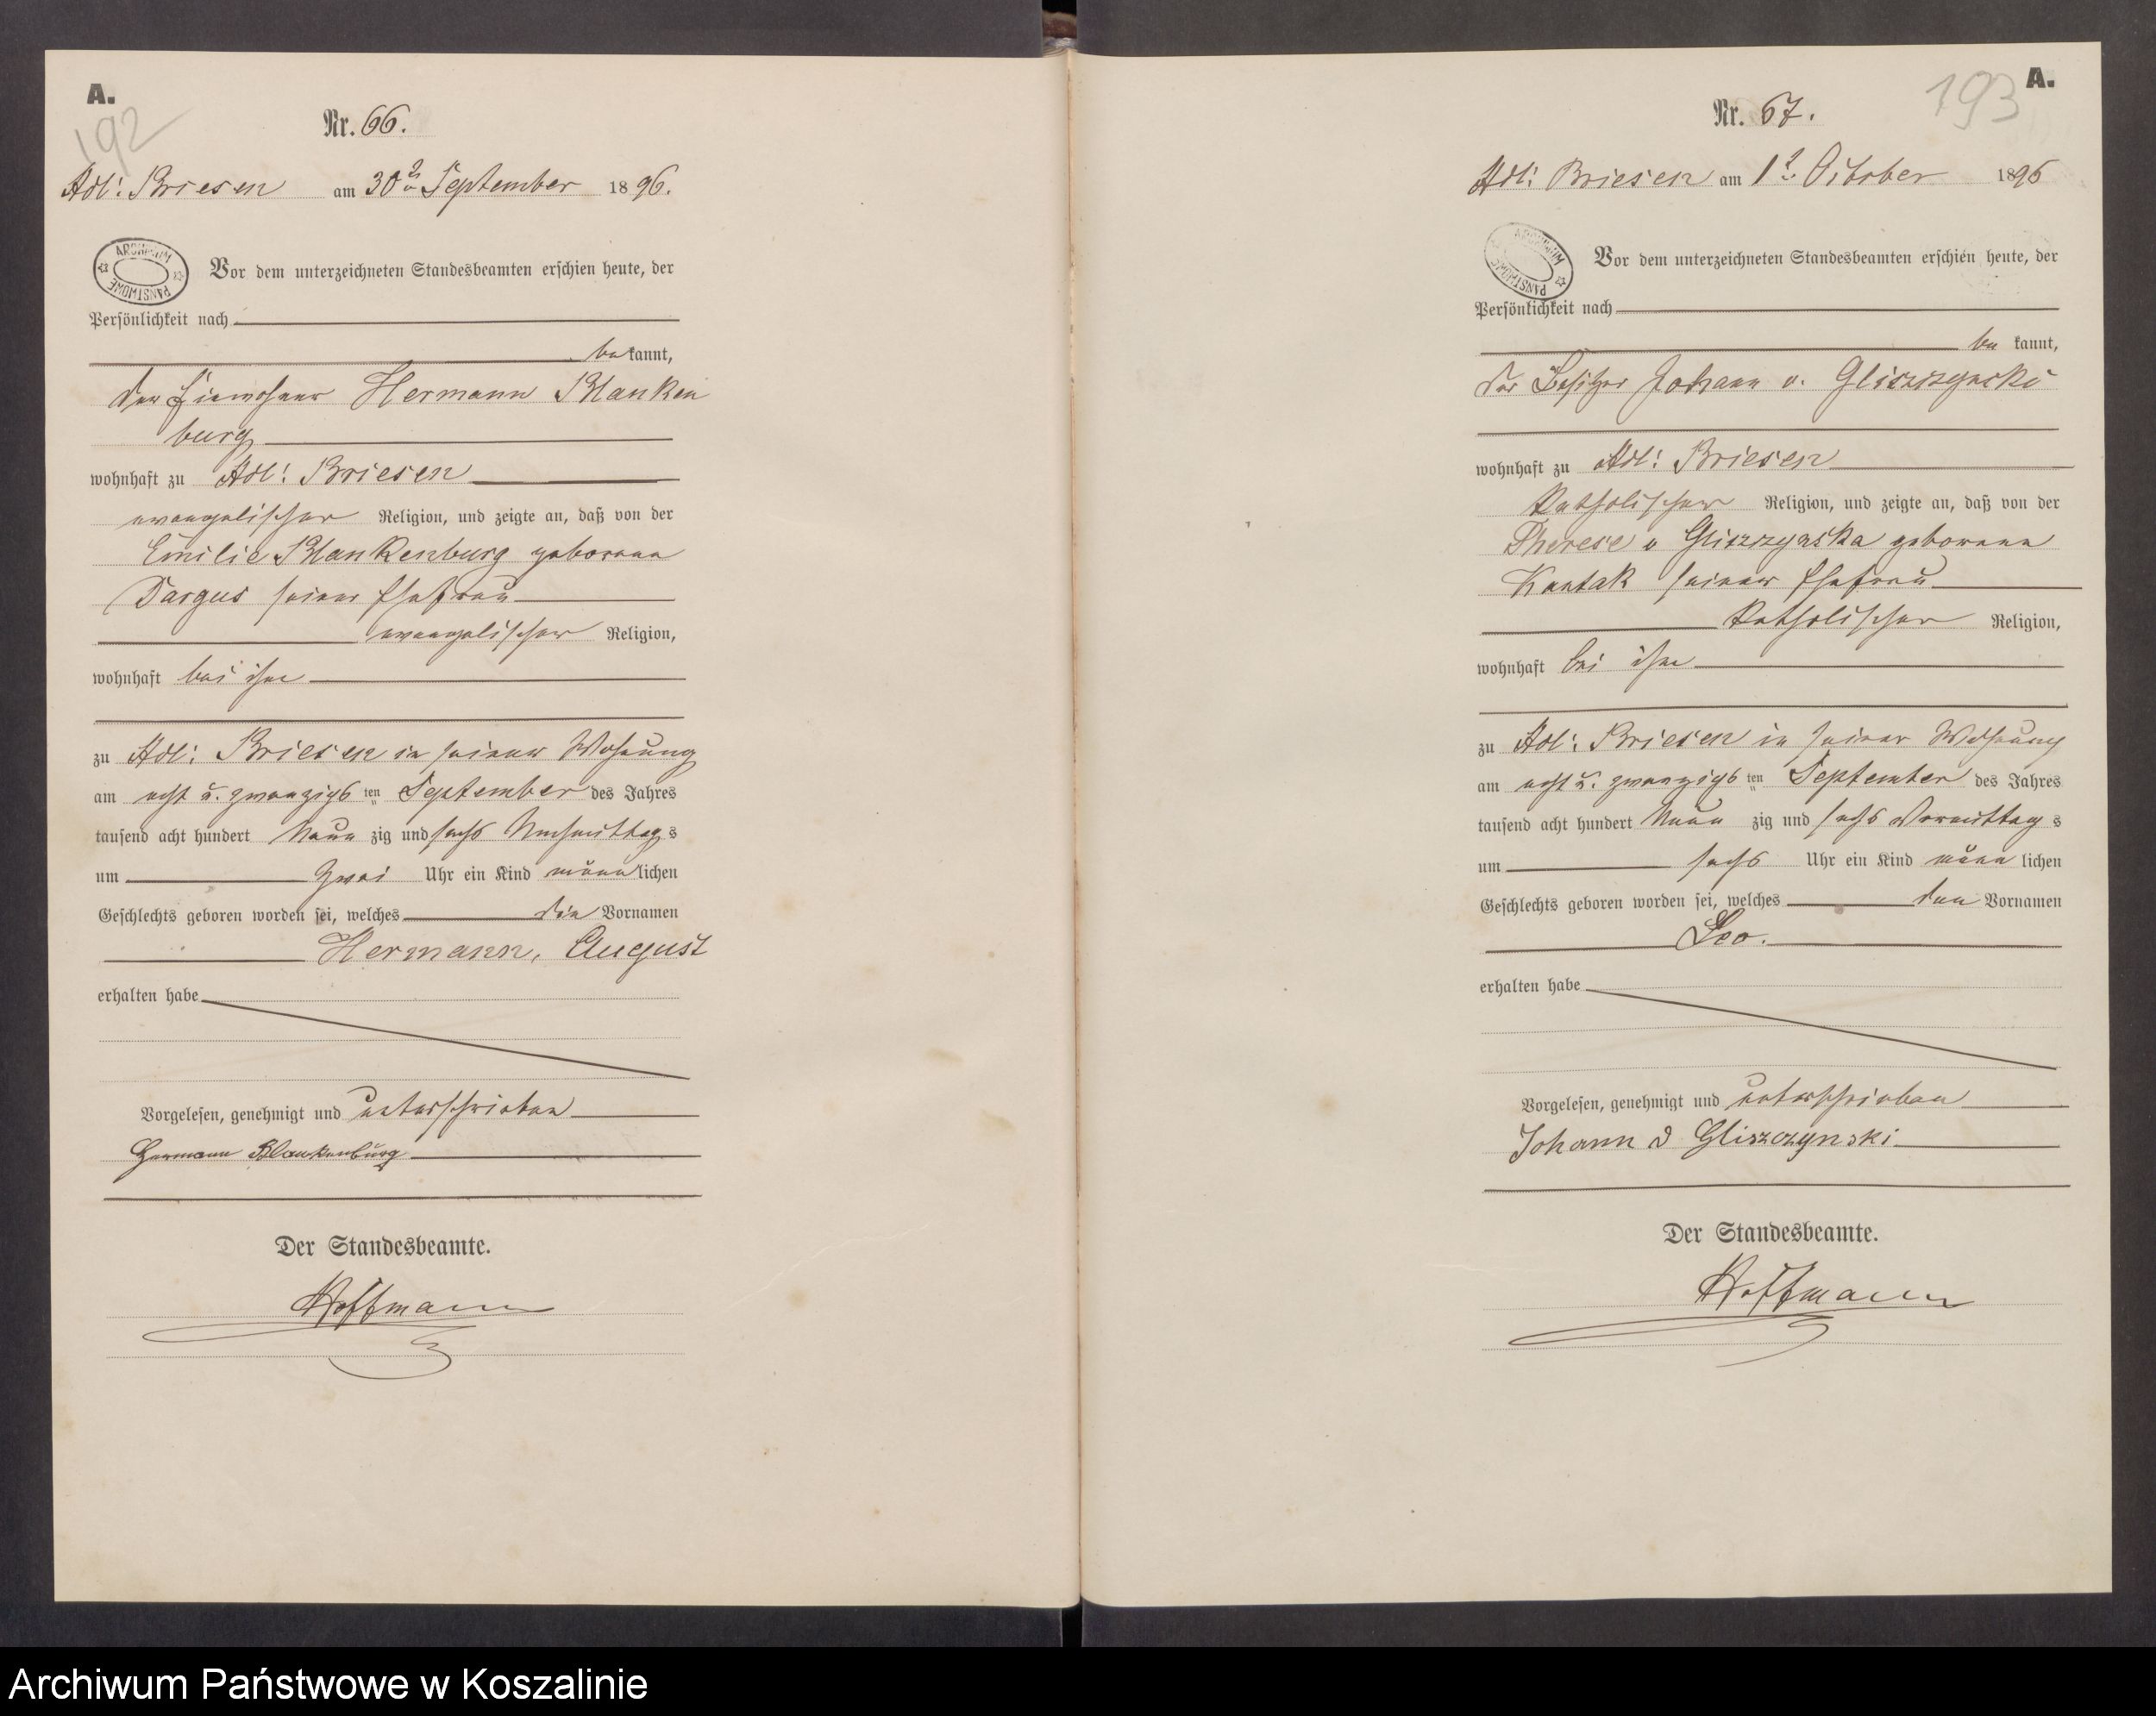 A.
192
Nr. 66.
Adl: Briesen am 30ten September 1896.
ARCHIWUM PAŃSTWOWE
Vor dem unterzeichneten Standesbeamten erschien heute, der
Persönlichkeit nach
bekannt,
der Einwohner Hermann Blanken
burg
wohnhaft zu Adl: Briesen
evangelischer Religion, und zeigte an, daß von der
Emilie Blankenburg geborene
Dargus seiner Ehefrau
evangelischer Religion,
wohnhaft bei ihm
zu Adl: Briesen in seiner Wohnung
am acht u. zwanzigsten September des Jahres
tausend acht hundert Neunzig und sechs Nachmittags
um Zwei Uhr ein Kind männlichen
Geschlechts geboren worden sei, welches die Vornamen
Hermann, August
erhalten habe
Vorgelesen, genehmigt und unterschrieben
Hermann Blankenburg
Der Standesbeamte.
Hoffmann
A.
193
Nr. 67.
Adl: Briesen am 1ten October 1896
ARCHIWUM PAŃSTWOWE
Vor dem unterzeichneten Standesbeamten erschien heute, der
Persönlichkeit nach
bekannt,
der Besitzer Johann v. Gliszzynski
wohnhaft zu Adl: Briesen
katholischer Religion, und zeigte an, daß von der
Therese v Gliszzynska geborene
Kantak seiner Ehefrau
katholischer Religion,
wohnhaft bei ihm
zu Adl: Briesen in seiner Wohnung
am acht u. zwanzigsten September des Jahres
tausend acht hundert Neunzig und sechs Vormittags
um sechs Uhr ein Kind männlichen
Geschlechts geboren worden sei, welches den Vornamen
Leo.
erhalten habe
Vorgelesen, genehmigt und unterschrieben
Johann v Gliszczynski
Der Standesbeamte.
Hoffmann
Archiwum Państwowe w Koszalinie